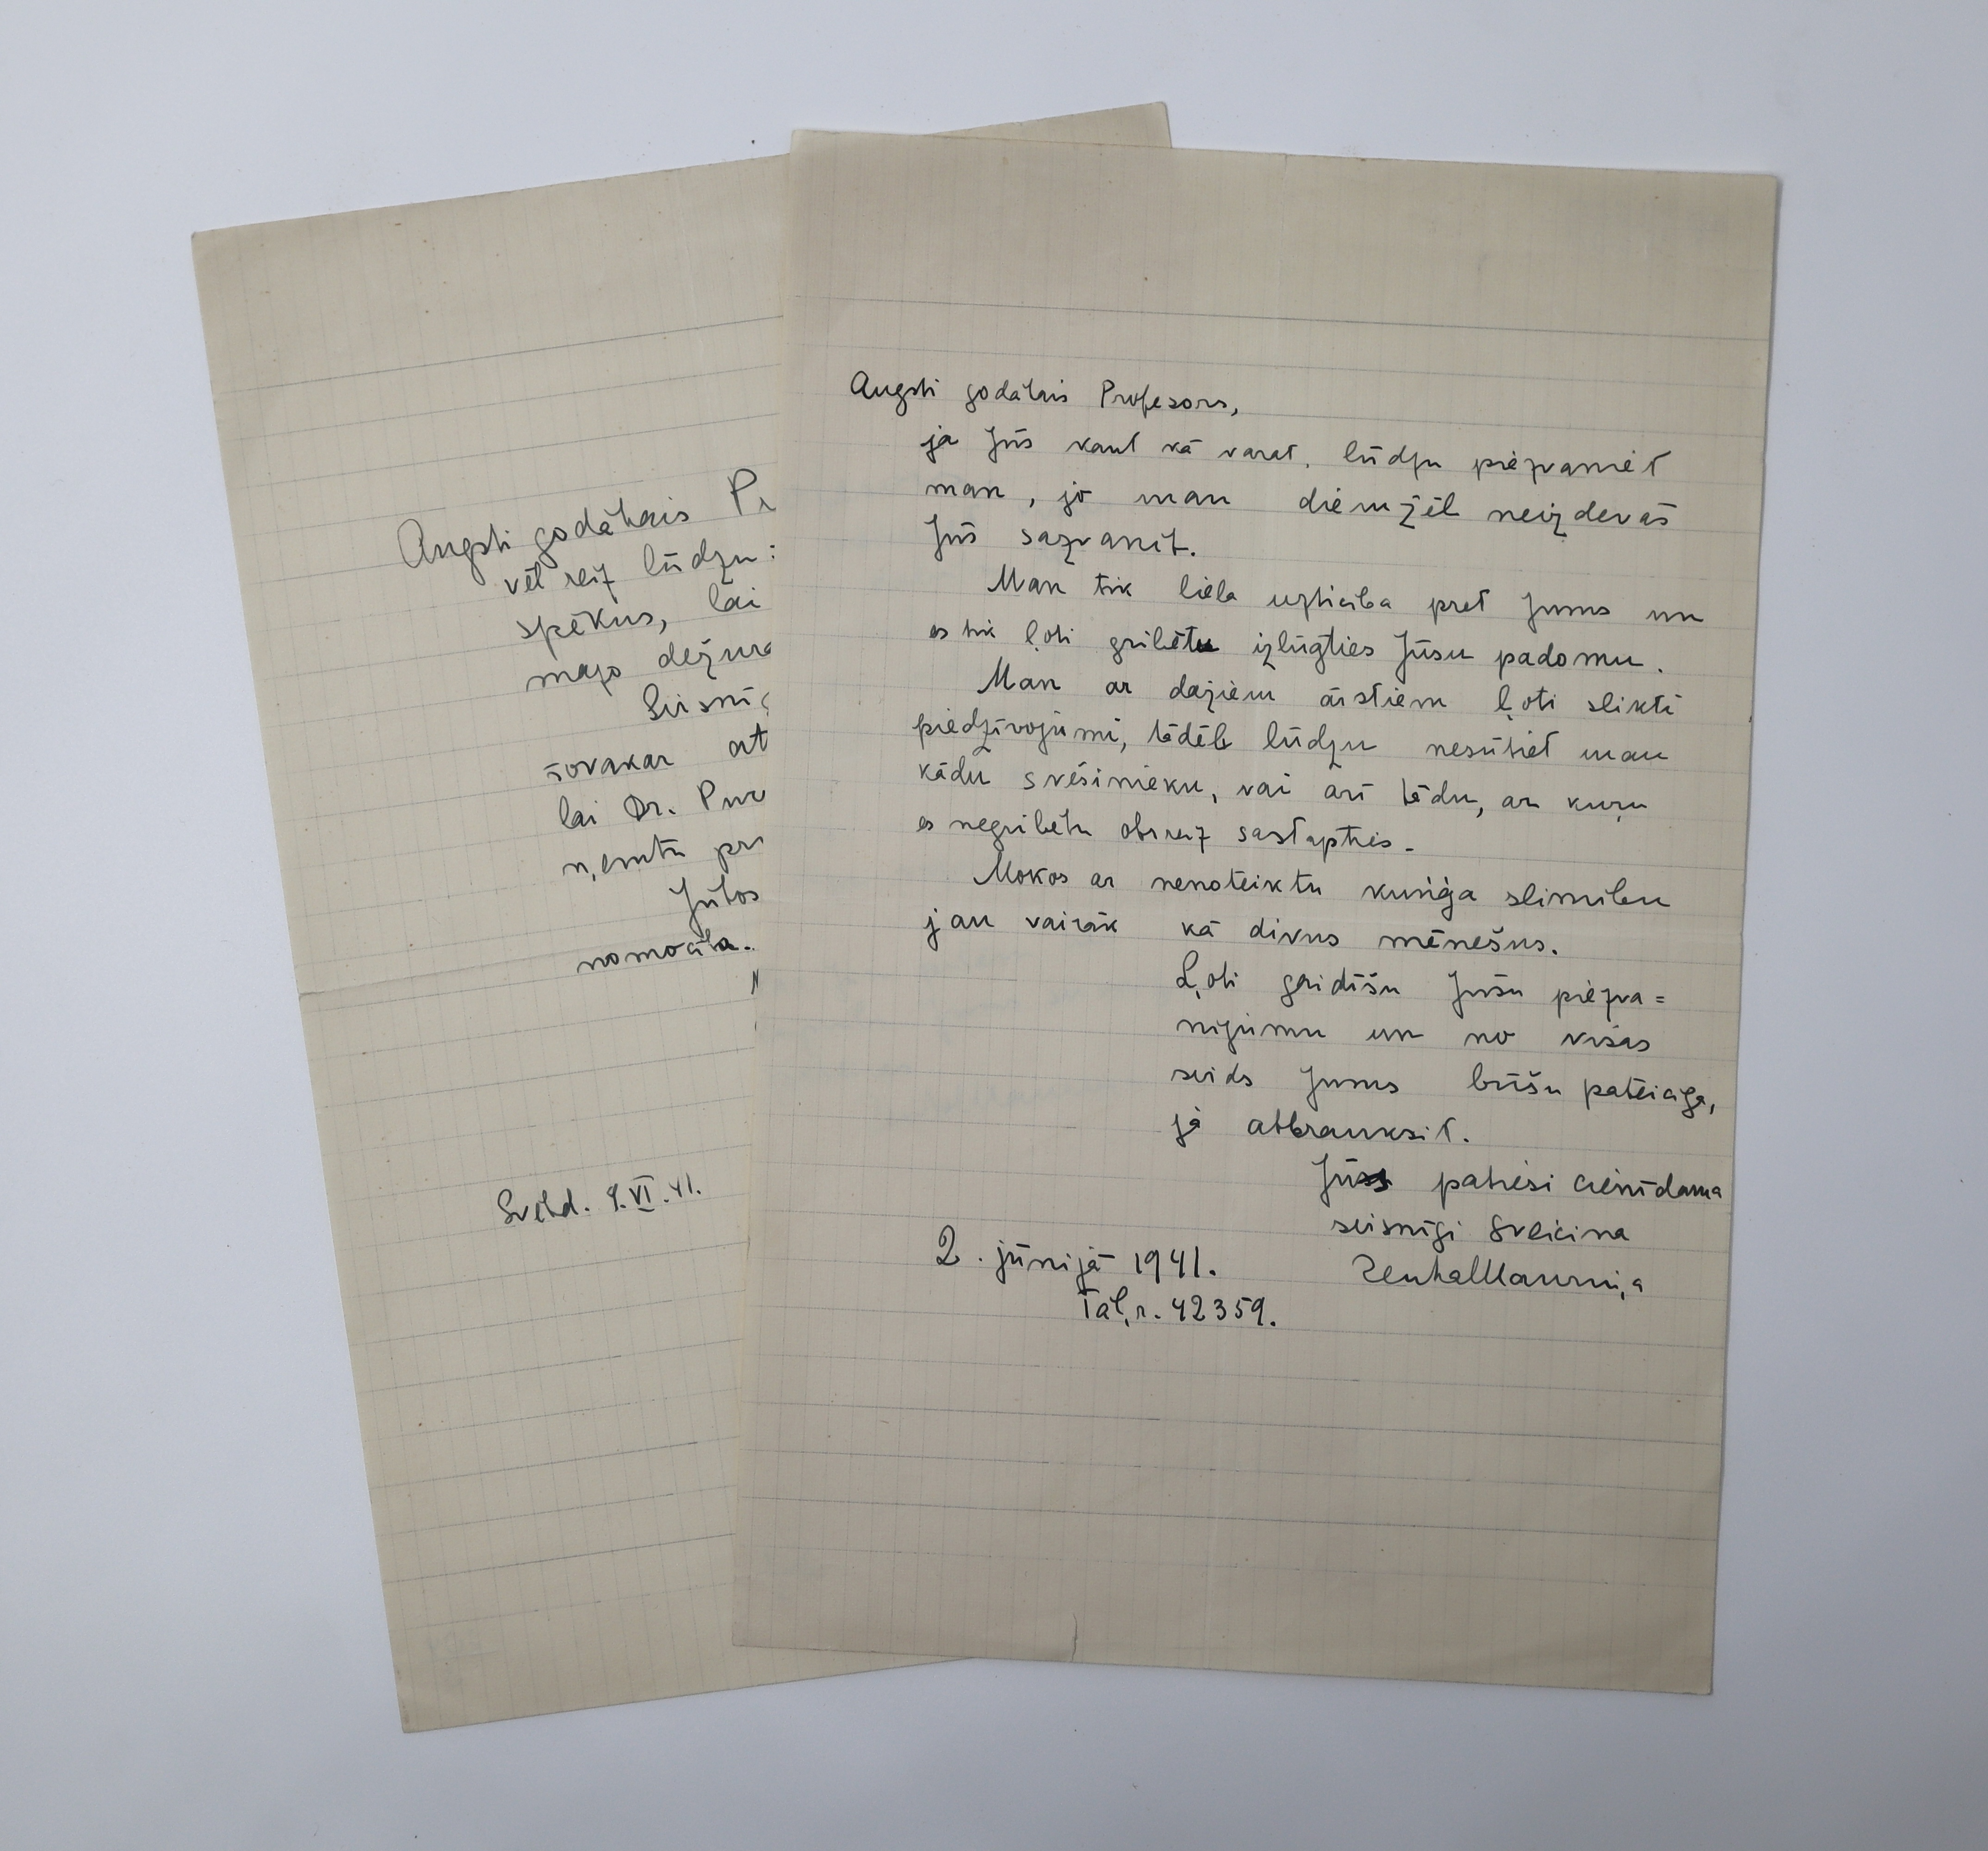 Augsti godātais
vēl reiz lūdzu:
spēkus, lai
mazo
Sirsnīg
šovakar at
lai Dr. Pur
ņemtu pr
Jūtos
nomocīta.
Svētd. 9.VI.41.
Augsti godātais Profesors,
ja Jūs kaut kā varat, lūdzu piezvaniet
man, jo man diemžēl neizdevās
Jūs sazvanīt.
Man tik liela uzticība pret Jums un
es tik ļoti gribētu izlūgties Jūsu padomu.
Man ar dažiem ārstiem ļoti slikti
piedzīvojumi, tādēļ lūdzu nesūtiet man
kādu svešinieku, vai arī tādu, ar kuŗu
es negribētu otrreiz sastapties.
Mokos ar nenoteiktu kuņģa slimību
jau vairāk kā divus mēnešus.
Ļoti gaidīšu Jūsu piezva=
nījumu un no visas
sirds Jums būšu pateicīga,
ja atbrauksit.
Jūs patiesi cienīdama
sirsnīgi sveicina
ZentaMauriņa
2. jūnijā 1941.
Tāļr. 42359.